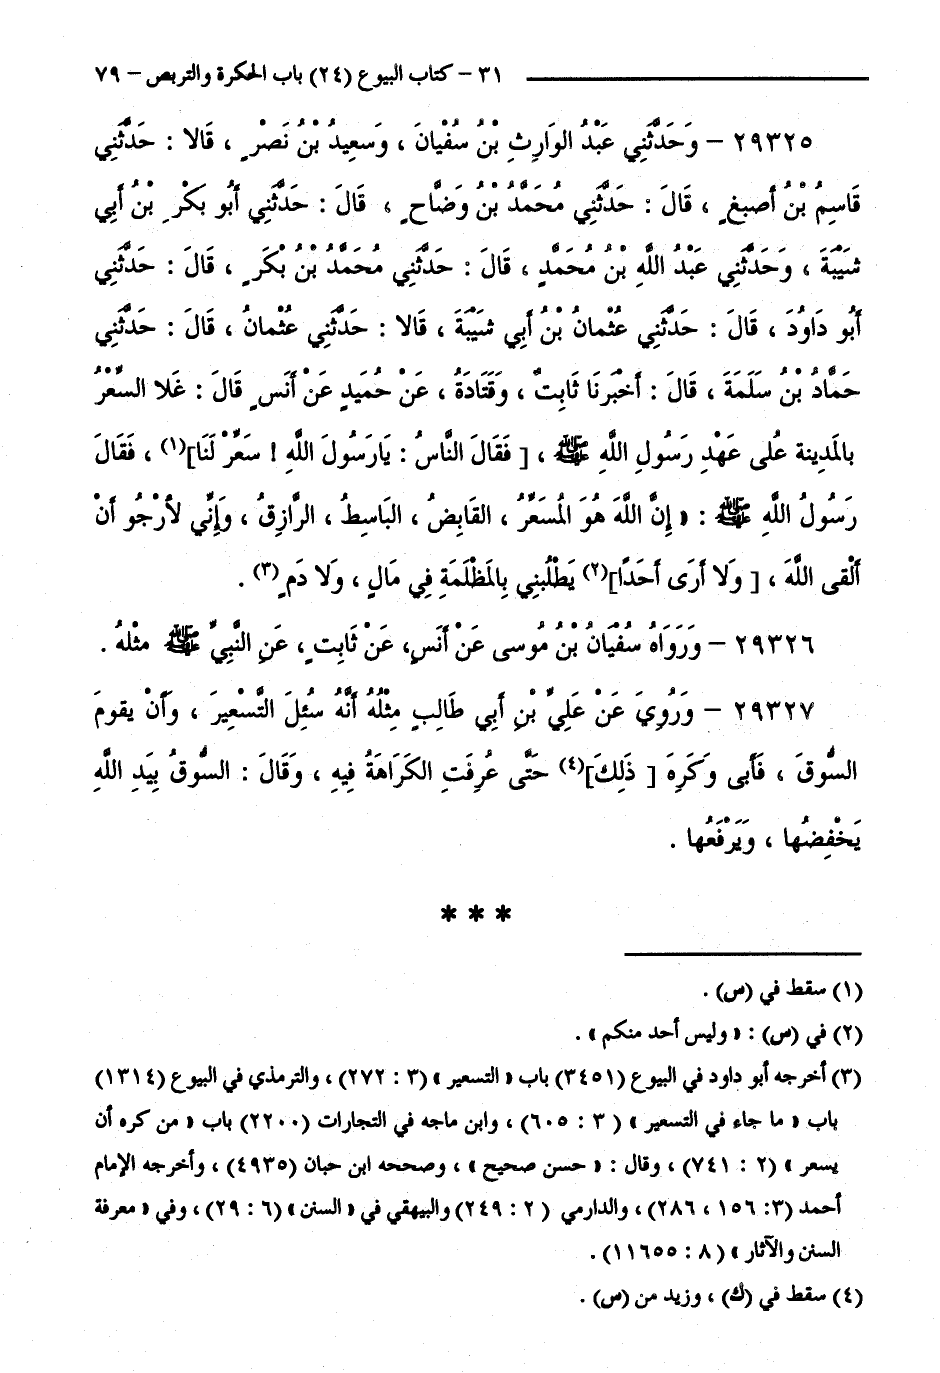 ٣١ – كتاب البيوع (٢٤) باب الحكرة والتربص – ٧٩
٢٩٣٢٥ – وَحَدَّثَنِي عَبْدُ الوَارِثِ بْنُ سُفْيَانَ ، وَسَعِيدُ بْنُ نَصْرٍ ، قَالا : حَدَّثَنِي
قَاسِمُ بْنُ أصبغٍ ، قَالَ : حَدَّثَنِي مُحَمَّدُ بْنُ وَضَّاحٍ ، قَالَ : حَدَّثَنِي أَبُو بَكْرِ بْنُ أَبِي
شَيْبَةَ ، وَحَدَّثَنِي عَبْدُ اللَّهِ بْنُ مُحَمَّدٍ ، قَالَ : حَدَّثَنِي مُحَمَّدُ بْنُ بَكْرٍ ، قَالَ : حَدَّثَنِي
أَبُو دَاوُدَ ، قَالَ : حَدَّثَنِي عُثْمانُ بْنُ أَبِي شَيْبَةَ ، قَالا : حَدَّثَنِي عثْمانُ ، قَالَ : حَدَّثَنِي
حَمَّادُ بْنُ سَلَمَةَ ، قَالَ : أَخْبَرَنَا ثَابِتٌ ، وَقَتَادَةُ ، عَنْ حُمَيدٍ عَنْ أَنَسٍ قَالَ : غَلا السِّعْرُ
بالمَدِينة عُلى عَهْدِ رَسُولِ اللَّهِ ﷺ ، [ فَقَالَ النَّاسُ : يَارَسُولَ اللَّهِ ! سَعِّرْ لَنَا](١) ، فَقَالَ
رَسُولُ اللَّهِ ﷺ : « إِنَّ اللَّهَ هُوَ المُسَعِّرُ ، القَابِضُ ، البَاسِطُ ، الرَّازِقُ ، وَإِنِّي لأَرْجُو أَنْ
أَلْقى اللَّهَ ، [ وَلا أَرَى أَحَدًا](٢) يَطْلُبنِي بِالمَظْلَمَةِ فِي مَالٍ ، وَلا دَمٍ (٣) .
٢٩٣٢٦ – وَرَوَاهُ سُفْيَانُ بْنُ مُوسى عَنْ أَنَسٍ، عَنْ ثَابِتٍ ، عَنِ النَّبِيِّ ﷺ مثْلهُ .
٢٩٣٢٧ – وَرُوِيَ عَنْ عَلِيِّ بْنِ أَبِي طَالِبٍ مِثْلُهُ أَنَّهُ سُئِلَ التَّسْعِيرَ ، وَأَنْ يقومَ
السُّوقَ ، فَأَبى وَكَرِهَ [ ذَلِكَ](٤) حَتَّى عُرِفَتِ الكَرَاهَةُ فِيهِ ، وَقَالَ : السُّوقُ بِيَدِ اللَّهِ
يَخْفِضُها ، وَيَرْفَعُها .
* * *
(١) سقط في (س) .
(٢) في (س) : « وليس أحد منكم » .
(٣) أخرجه أبو داود في البيوع (٣٤٥١) باب « التسعير » (٣ : ٢٧٢) ، والترمذي في البيوع (١٣١٤)
باب « ما جاء في التسعير » ( ٣ : ٦٠٥) ، وابن ماجه في التجارات (٢٢٠٠) باب « من كره أن
يسعر » (٢ : ٧٤١) ، وقال : « حسن صحيح » ، وصححه ابن حبان (٤٩٣٥) ، وأخرجه الإمام
أحمد (٣: ١٥٦ ، ٢٨٦) ، والدارمي (٢ : ٢٤٩) والبيهقي في « السنن » (٦ : ٢٩) ، وفي « معرفة
السنن والآثار » (٨ : ١١٦٥٥) .
(٤) سقط في (ك) ، وزيد من (س) .